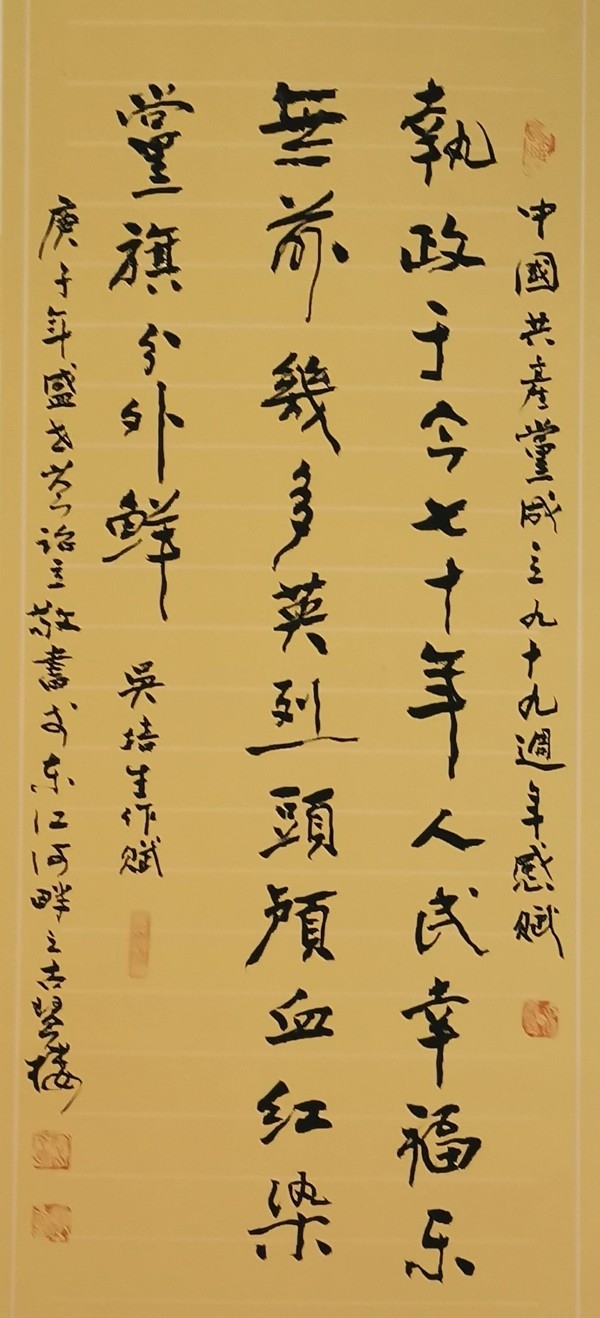 中國共產黨成立九十九週年感賦
執政于今七十年人民幸福乐
無前幾多英烈頭顱血红染
黨旗分外鮮
吳培生作賦
庚子年盛世敬書於东江河畔之古楼